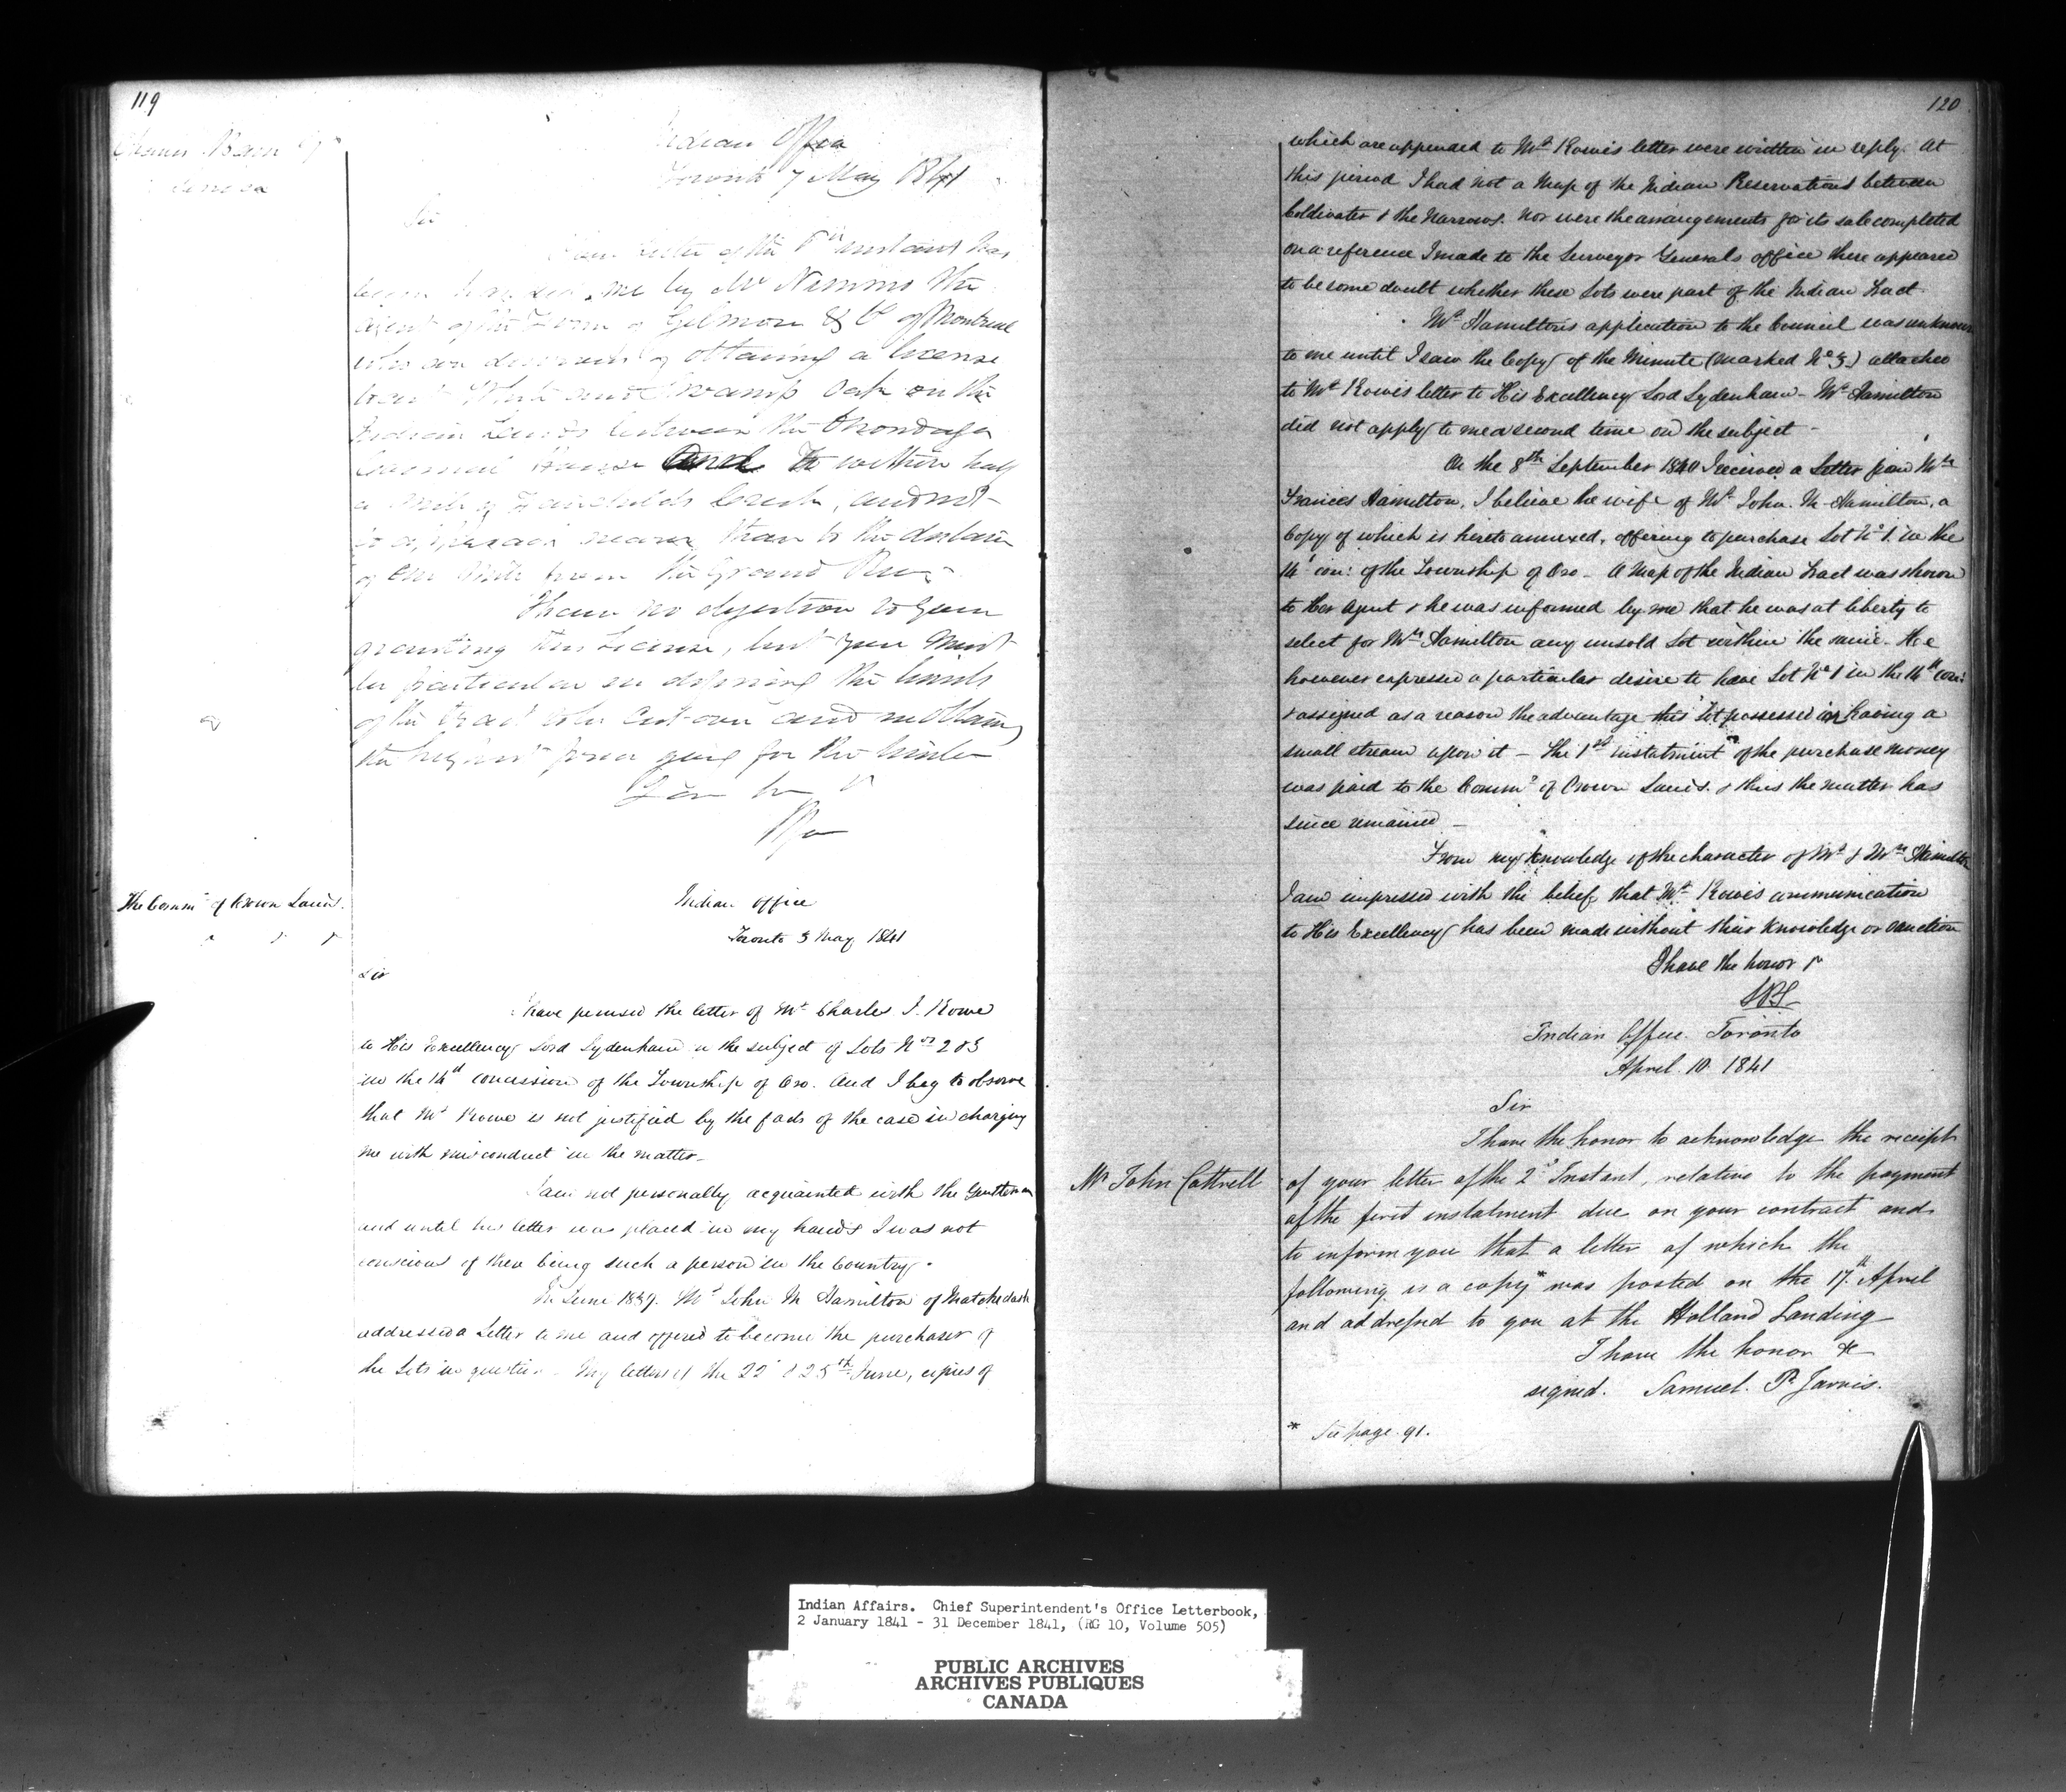 119
Indian Office
Toronto 7 May 1841
Sir
Your letter of the instant has
been handed me by Mr Nimmo the
Agent of the Firm of Gilmour & Co of Montreal
who are desirous of obtaining a license
to cut White and Swamp Oak on the
Indian Lands between the Onondaga
Council House and to within half
a mile of Fairchilds Creek, and not
to approach nearer than to the distance
of one mile from the Grand River
I have no objection to your
granting this License, but you must
be particular in defining the limits
of the tract to be cut over and in obtaining
the highest price going for the timber
The Commr of Crown Lands.
Indian Office
Toronto 3 May 1841
Sir
I have perused the letter of Mr Charles J. Rowe
to His Excellency Lord Sydenham on the subject of Lots Nos 2 & 3
in the 14th concession of the Township of Oro. And I beg to observe
that Mr Rowe is not justified by the facts of the case in charging
me with misconduct in the matter_
I am not personally acquainted with the Gentleman
and until his letter was placed in my hands I was not
conscious of there being such a person in the Country.
In June 1839. Mr John M Hamilton of Matchedash
addressed a Letter to me and offered to become the purchaser of
the Lots in question - My letters of the 22d & 25th June, copies of
120
which are appended to Mr Rowe's letter were written in reply. At
this period I had not a Map of the Indian Reservations between
Coldwater & the Narrows. nor were the arrangements for its sale completed
on a reference I made to the Surveyor Generals office there appeared
to be some doubt whether these Lots were part of the Indian Tract
Mr Hamilton's application to the Council was unknown
to me until I saw the Copy of the Minute (marked No 3) attached
to Mr Rowe's letter to His Excellency Lord Sydenham - Mr Hamilton
did not apply to me a second time on the subject -
On the 8th September 1840 I received a Letter from Mrs
Frances Hamilton, I believe the wife of Mr John. M. Hamilton, a
Copy of which is hereto annexed, offering to purchase Lot No 1. in the
14 con: of the Township of Oro - A Map of the Indian Tract was shown
to Her Agent & he was informed by me that he was at liberty to
select for Mrs Hamilton any unsold Lot within the same - He
however expressed a particular desire to have Lot No 1 in the 14th con:
& assigned as a reason the advantage this Lot possessed in having a
small stream upon it - The 1st instalment of the purchase money
was paid to the Commr of Crown Lands. & thus the matter has
since remained _
From my knowledge of the character of Mr & Mrs Hamilton
I am impressed with the belief that Mr Rowe's communication
to His Excellency has been made without their knowledge or sanction
I have the honor &
SPJ
Indian Office. Toronto
April 10. 1841
Sir
I have the honor to acknowledge the receipt
Mr John Cottrell
of your letter of the 2d Instant, relative to the payment
of the first instalment due on your contract and
to inform you that a letter of which the
following is a copy* was posted on the 17th April
and addressed to you at the Holland Landing
I have the honor &c
signed. Samuel. P. Jarvis.
* See page 91.
Indian Affairs. Chief Superintendent's Office Letterbook,
2 January 1841 - 31 December 1841, (RG 10, Volume 505)
PUBLIC ARCHIVES
ARCHIVES PUBLIQUES
CANADA